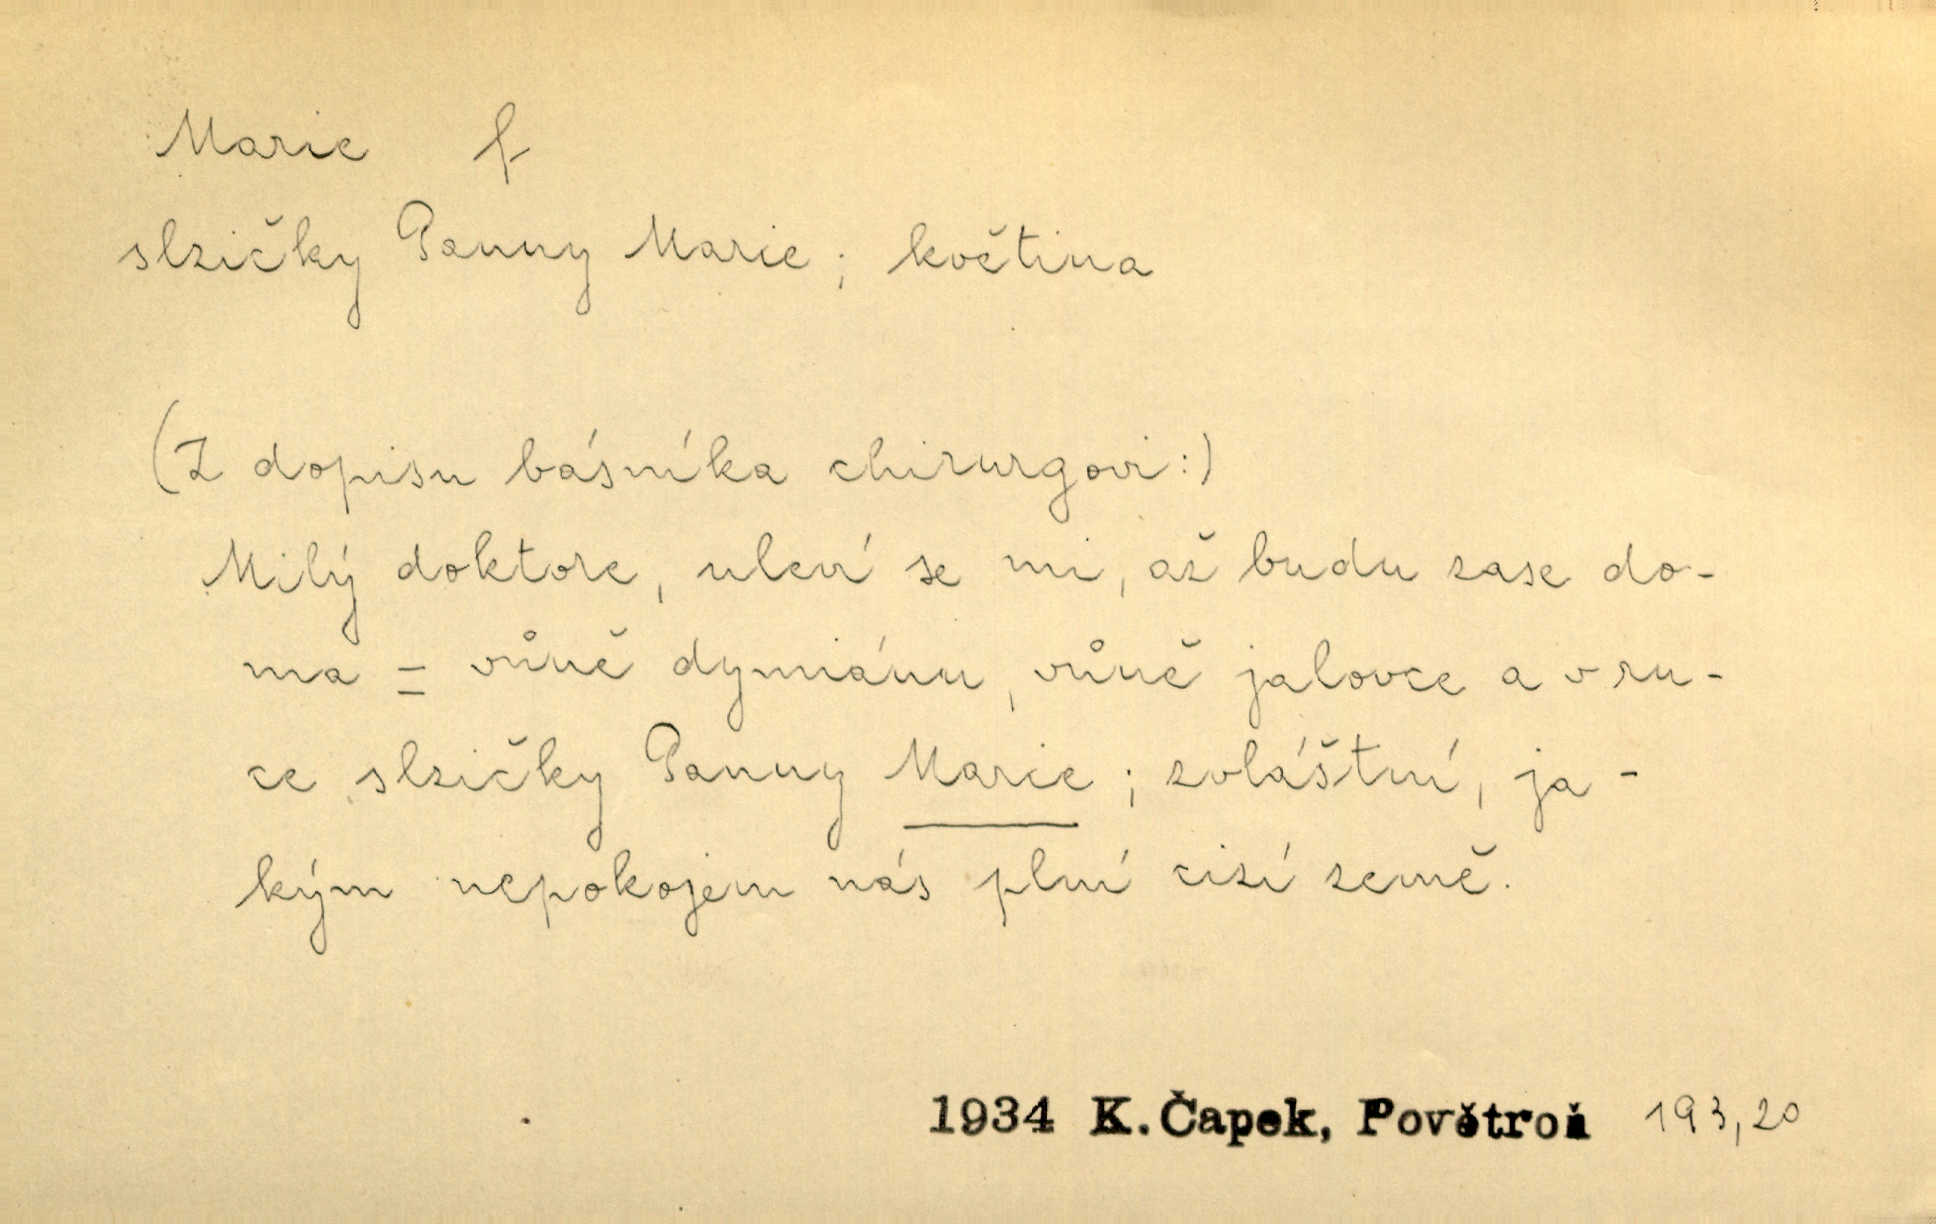 Marie f
slzičky Panny Marie; květina
(Z dopisu básníka chirurgovi:)
Milý doktore, uleví se mi, až budu zase do-
ma = vůně dymiánu, vůně jalovce a v ru-
ce slzičky Panny Marie; zvláštní, ja-
kým nepokojem nás plní cizí země.
1934 K. Čapek, Povětroň 193,20